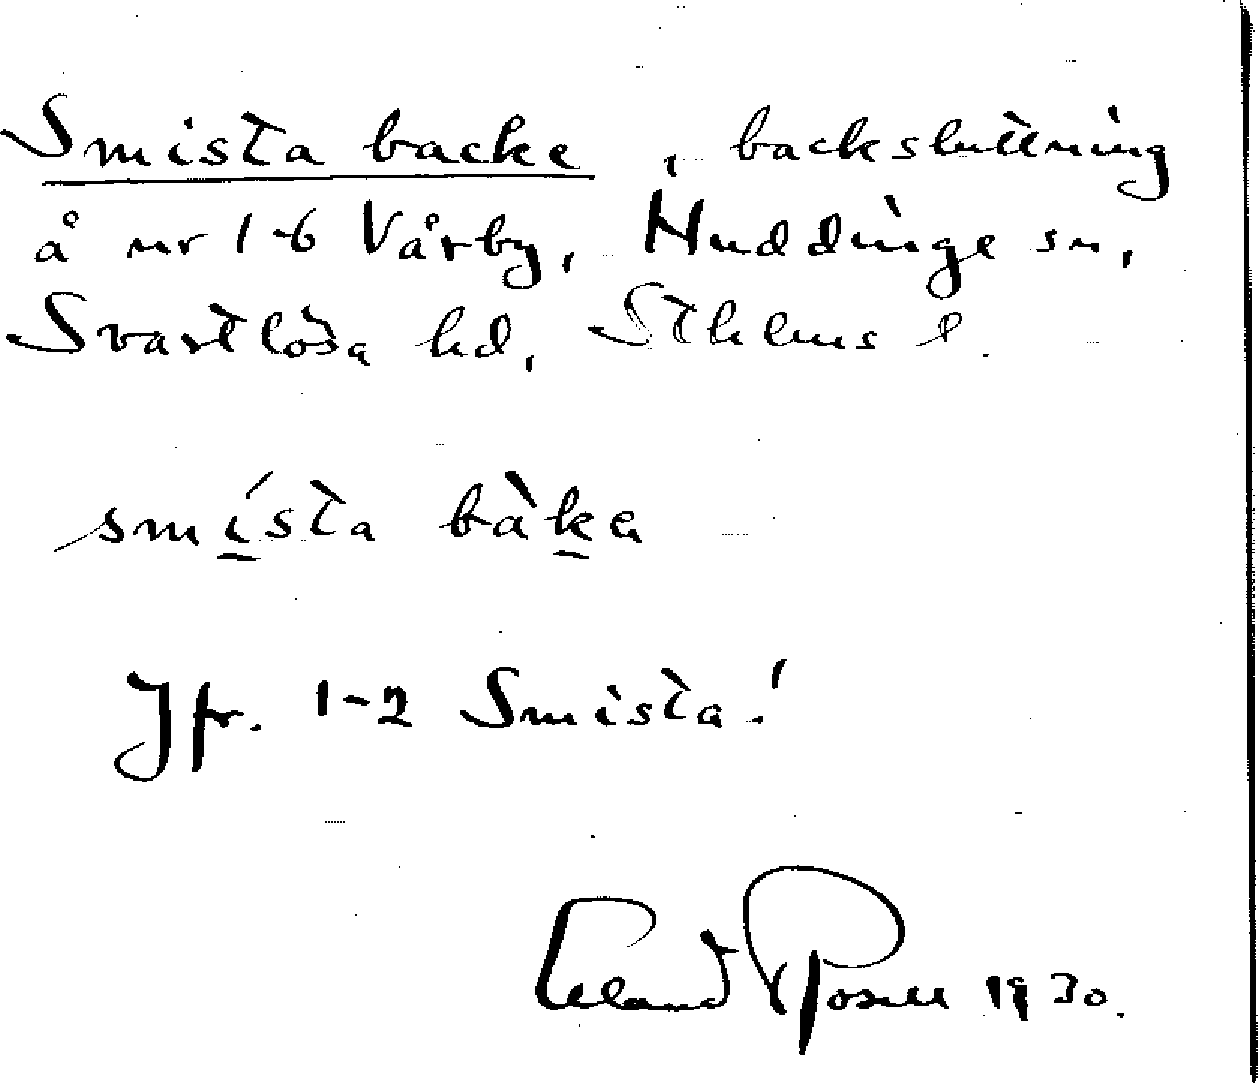 Smista backe, backsluttning
å nr 1-6 Vårby, Huddinge sn,
Svartlösa hd, Sthlms l.
smista bàka
Jfr. 1-2 Smista!
1930.